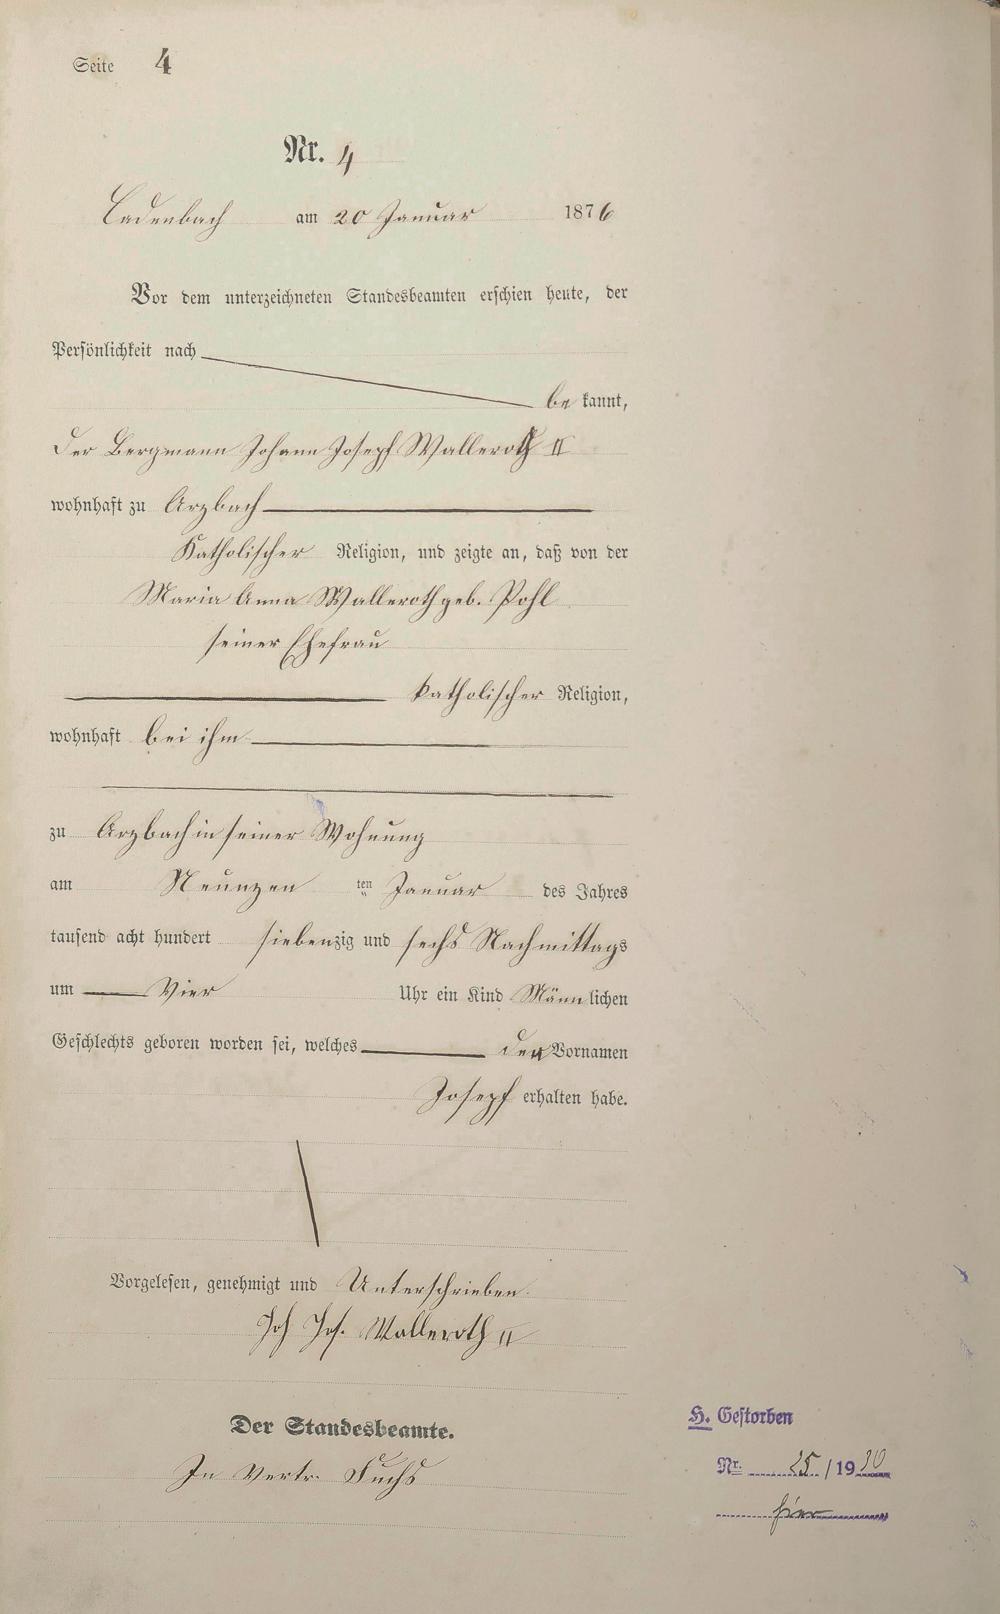 Seite 4
Nr. 4
Cadenbach am 20 Januar 1876
Vor dem unterzeichneten Standesbeamten erschien heute, der
Persönlichkeit nach
be kannt,
der Bergmann Johann Josepf Walleroth II
wohnhaft zu Arzbach
Katholischer Religion, und zeigte an, daß von der
Maria Anna Walleroth geb. Pohl
seiner Ehefrau
katholischer Religion,
wohnhaft bei ihm
zu Arzbach in seiner Wohnung
am Neunzen ten Januar des Jahres
tausend acht hundert siebenzig und sechs Nachmittags
um Vier Uhr ein Kind Männlichen
Geschlechts geboren worden sei, welches den Vornamen
Josepf erhalten habe.
Vorgelesen, genehmigt und Unterschrieben
Joh Jos. Walleroth II
Der Standesbeamte.
In Vertr. Fuchs
H. Gestorben
Nr. 25/1930
hier